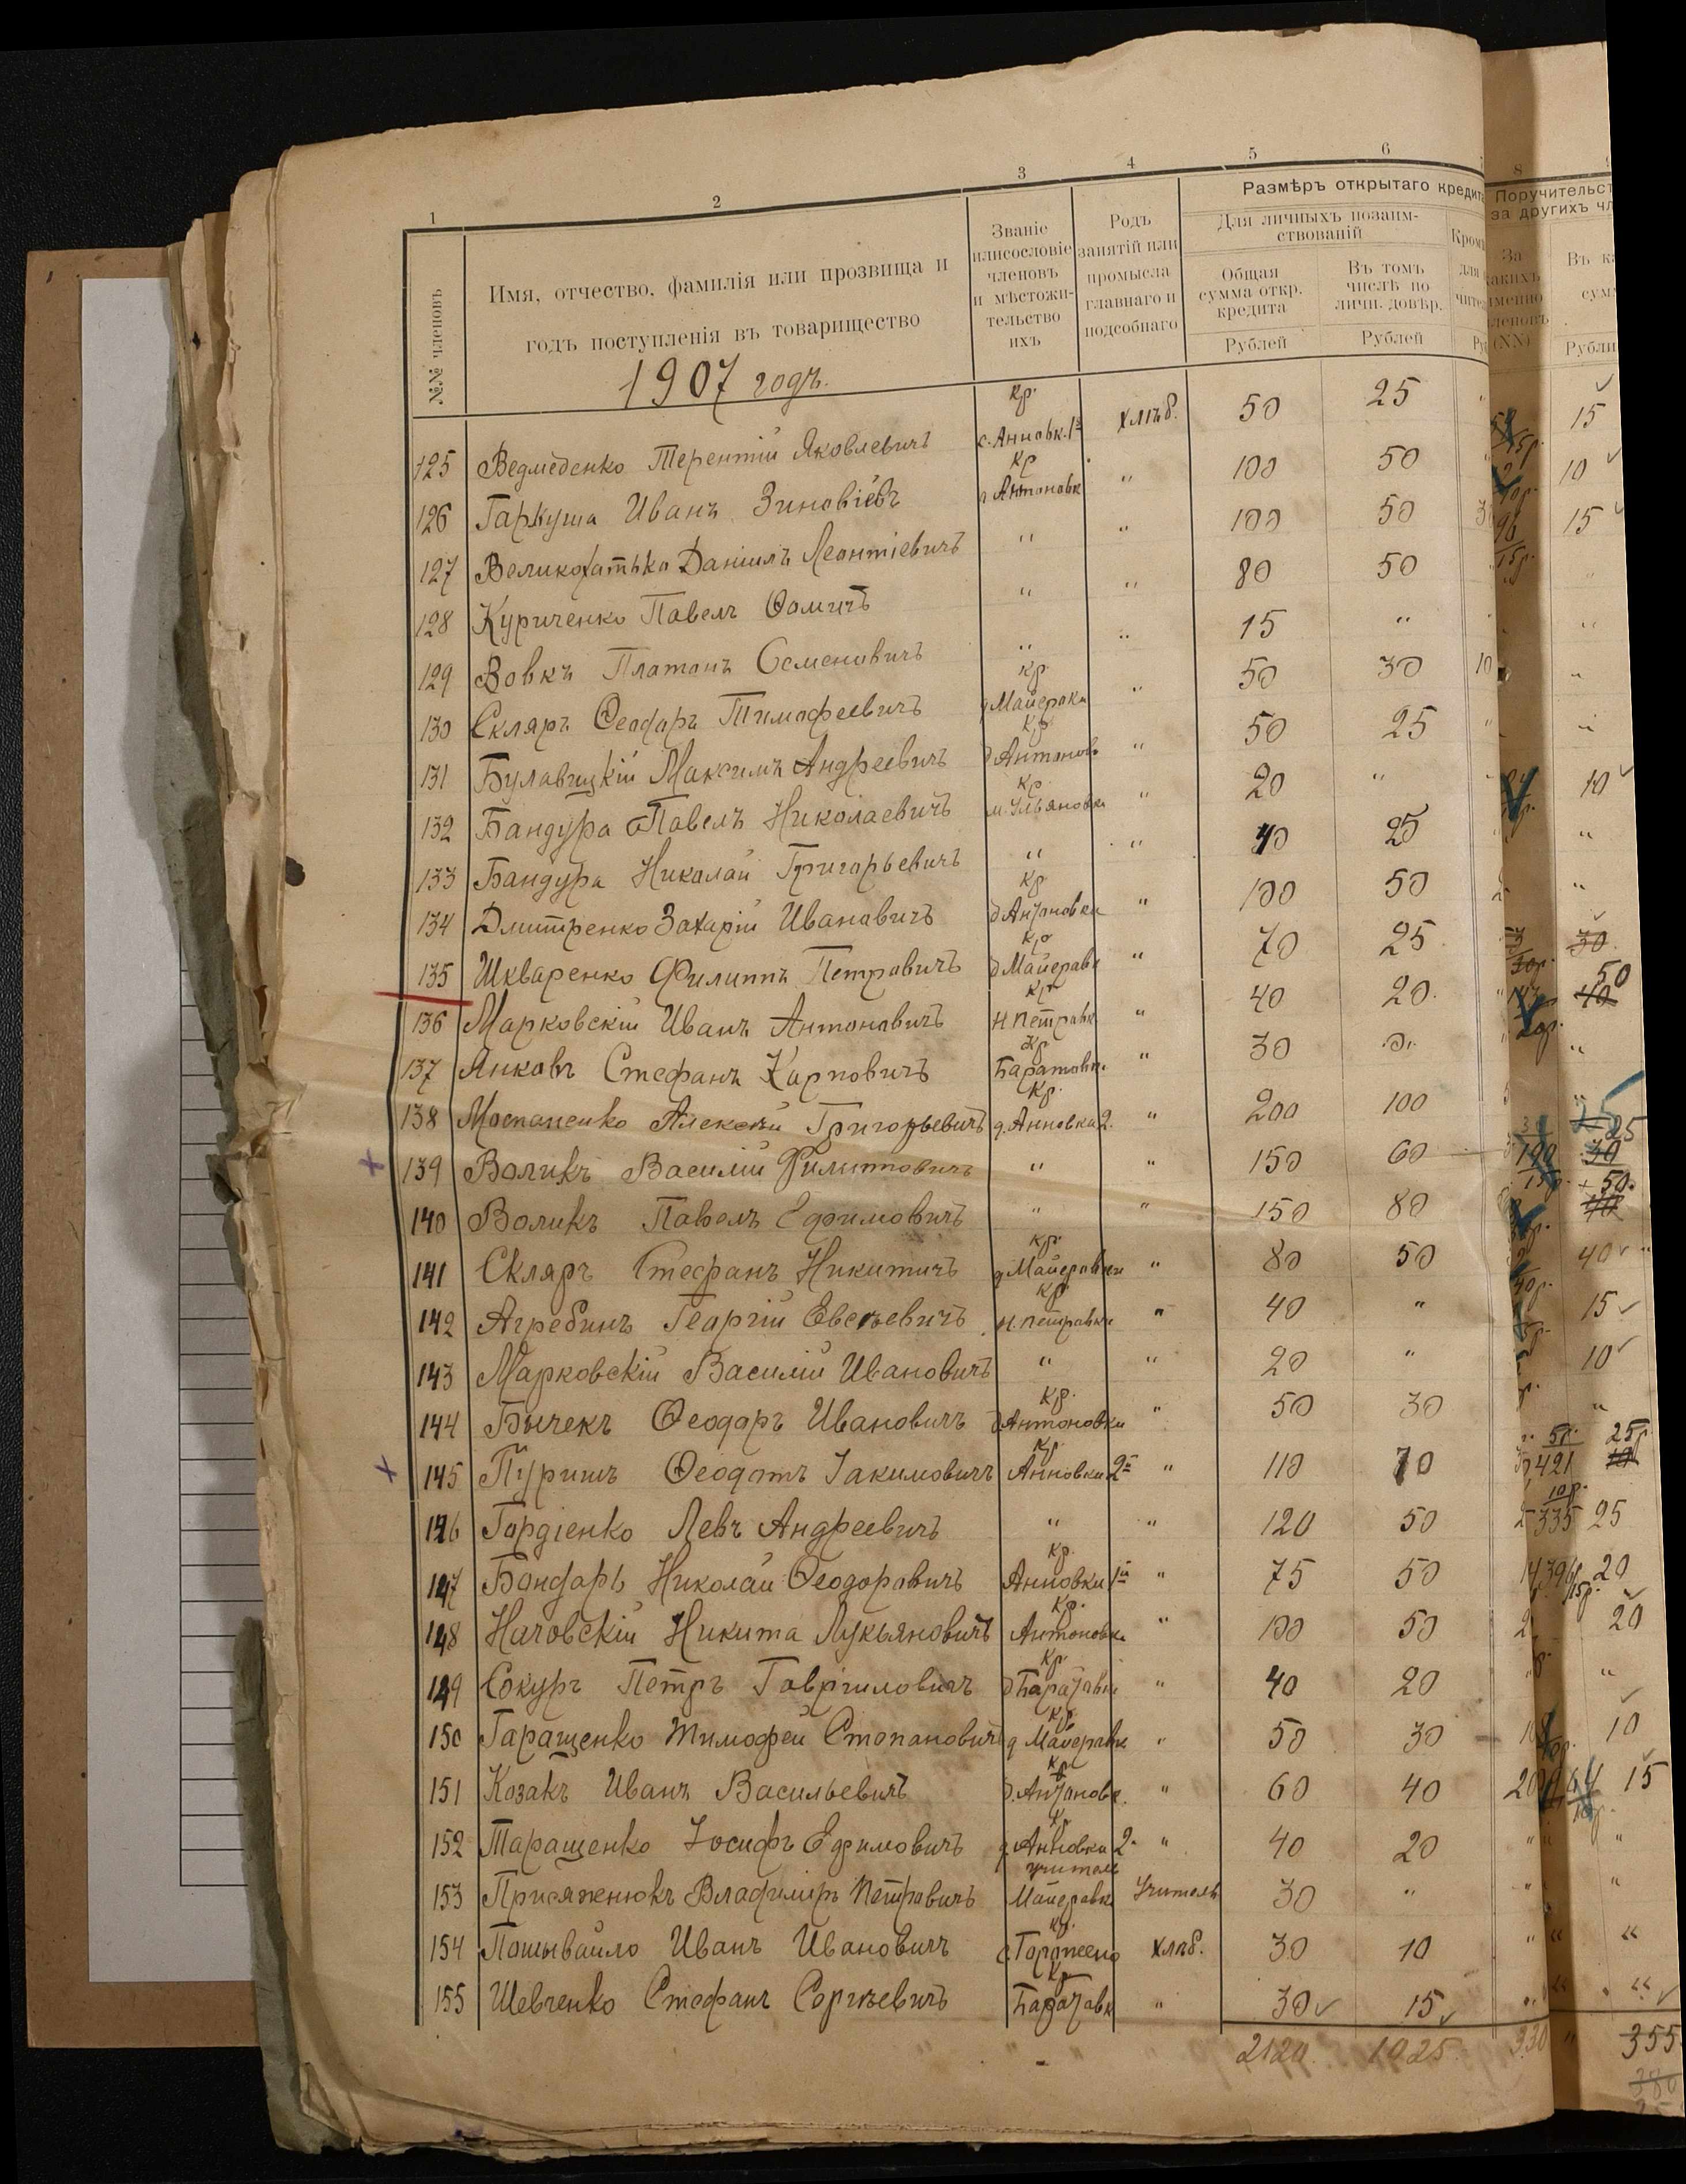 1 2 3 4 5 6 8
№№ членовъ
Имя, отчество, фамилія или прозвища и
годъ поступленія въ товарищество
1907 годъ.
Званіе
илисословіе
членовъ
и мѣстожи-
тельство
ихъ
Родъ
занятій или
промысла
главнаго и
подсобнаго
Размѣръ открытаго кредит
Для личныхъ позаим-
ствованій
Общая
сумма откр.
кредита
Рублей
Въ томъ
числѣ по
личн. довѣр.
Рублей
Поручительст
за другихъ чл
За
какихъ
именно
членовъ
(NN)
125 Ведмеденко Терентій Яковлевичъ кр. с. Анновк. 1й хлѣб. 50 25 15
126 Гаркуша Иванъ Зиновіевъ кр Антоновк " 100 50 10
127 Великохатько Даніилъ Леонтіевичъ " " 100 50 15
128 Куриченко Павелъ Ѳомичъ " " 80 50
129 Вовкъ Платонъ Семеновичъ " " 15 "
130 Скляръ Ѳеодоръ Тимофеевичъ кр. " 50 30 10
131 Булавицкій Максимъ Андреевичъ кр. д Антонов " 50 25
132 Бандура Павелъ Николаевичъ кр. м. Ульяновка " 20 " 10
133 Бандура Николай Григорьевичъ " " 40 25 "
134 Дмитренко Захарій Ивановичъ кр д Антоновка " 100 50 "
135 Шкваренко Филиппъ Петровичъ кр д Маперовк " 70 25 30
136 Марковскій Иванъ Антоновичъ кр Н. Петровк " 40 20 50
137 Янковъ Стефанъ Карповичъ кр Баратовк. " 30
138 Мостапенко Алексѣй Григорьевичъ кр. д. Анновка 2. " 200 100 25
139 Воликъ Василій Филипповичъ " " 150 60 30
140 Воликъ Павелъ Ефимовичъ " " 150 80 50.
141 Скляръ Стефанъ Никитичъ кр. " 80 50 40
142 Агребинъ Георгій Евсѣевичъ кр Н. Петровка " 40 " 15
143 Марковскій Василій Ивановичъ " " 20 " 10
144 Бычекъ Ѳеодоръ Ивановичъ кр. д Антоновки " 50 30 "
145 Пуришъ Ѳеодотъ Іакимовичъ кр. Анновки 2й " 110 70 421 25р
146 Гордіенко Левъ Андреевичъ " " 120 50 335 25
147 Бондарь Николай Ѳеодоровичъ кр. Анновки 1й " 75 50 20
148 Начовскій Никита Лукьяновичъ кр. Антоновк. " 100 50 20
149 Сокуръ Петръ Гавріиловичъ кр " 40 20 "
150 Гаращенко Тимофей Степановичъ кр. " 50 30 10
151 Козакъ Иванъ Васильевичъ кр д. Антонов. " 60 40 15
152 Таращенко Іосифъ Ефимовичъ кр д. Анновки 2. " 40 20 "
153 Присяженюкъ Владиміръ Петровичъ Учитель 30 " "
154 Пошывайло Иванъ Ивановичъ кр. хлѣб. 30 10 "
155 Шевченко Стефанъ Сергѣевичъ кр " 30 15 "
2120 1025 330 " 355
380